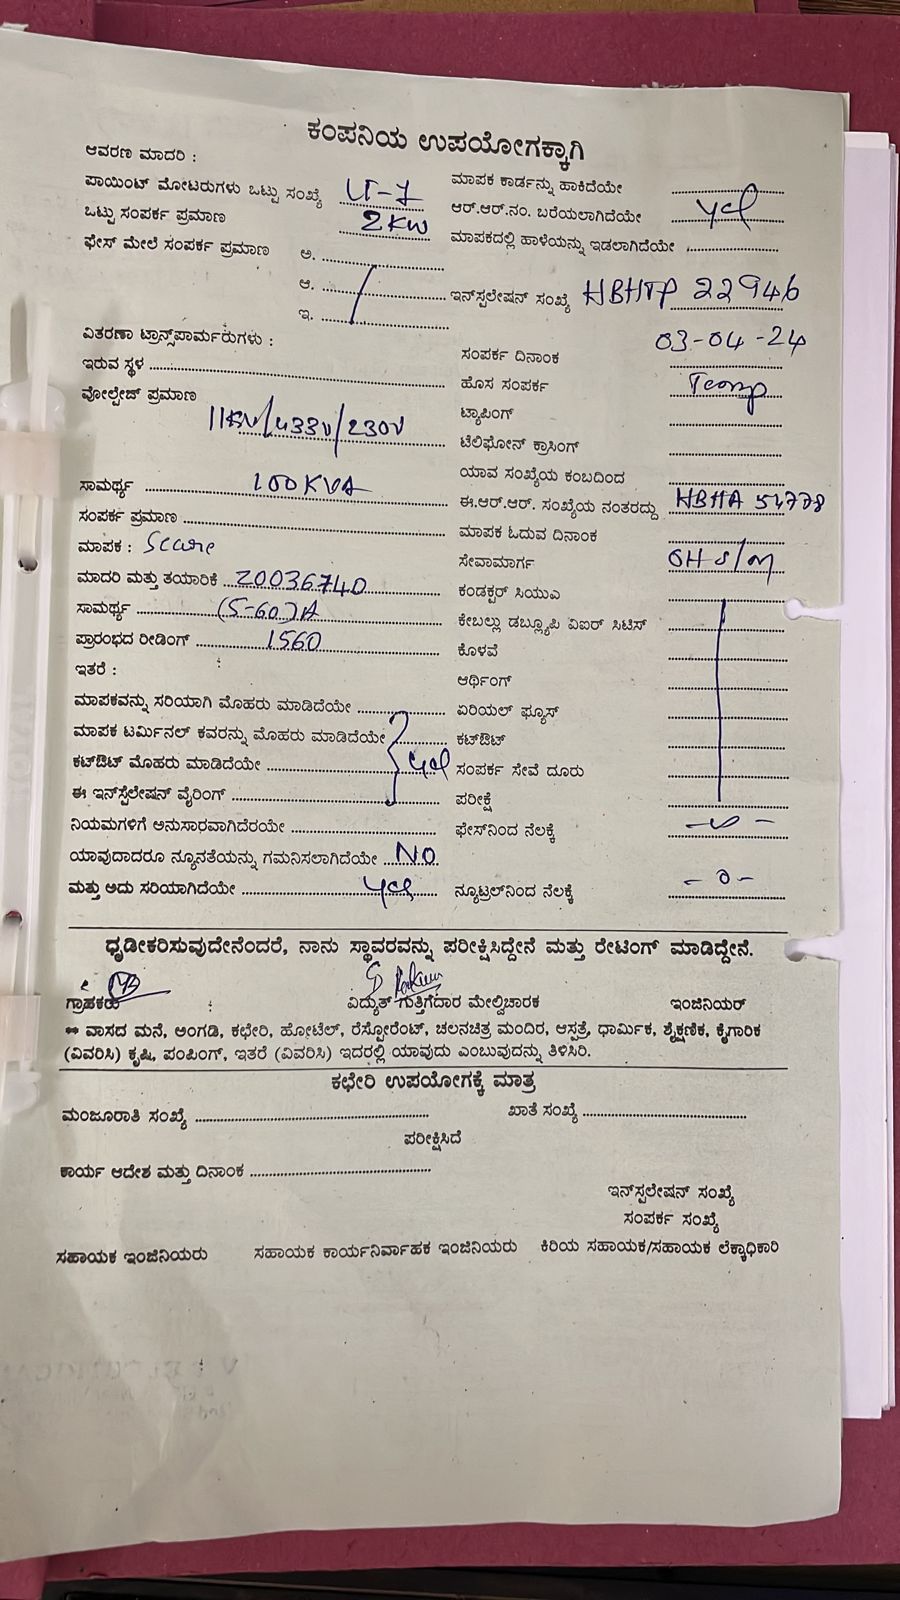 ಕಂಪನಿಯ ಉಪಯೋಗಕ್ಕಾಗಿ
ಆವರಣ ಮಾದರಿ :
ಪಾಯಿಂಟ್ ಮೋಟರುಗಳು ಒಟ್ಟು ಸಂಖ್ಯೆ
ಒಟ್ಟು ಸಂಪರ್ಕ ಪ್ರಮಾಣ 2KW
ಫೇಸ್ ಮೇಲೆ ಸಂಪರ್ಕ ಪ್ರಮಾಣ ಅ.
ಆ.
ಇ.
ವಿತರಣಾ ಟ್ರಾನ್ಸ್‌ಪಾರ್ಮರುಗಳು :
ಇರುವ ಸ್ಥಳ
ವೋಲ್ಟೇಜ್ ಪ್ರಮಾಣ
11KV/433V/230V
ಸಾಮರ್ಥ್ಯ 100KVA
ಸಂಪರ್ಕ ಪ್ರಮಾಣ
ಮಾಪಕ :
ಮಾದರಿ ಮತ್ತು ತಯಾರಿಕೆ 20036740
ಸಾಮರ್ಥ್ಯ (5-60)A
ಪ್ರಾರಂಭದ ರೀಡಿಂಗ್ 1560
ಇತರೆ :
ಮಾಪಕವನ್ನು ಸರಿಯಾಗಿ ಮೊಹರು ಮಾಡಿದೆಯೇ
ಮಾಪಕ ಟರ್ಮಿನಲ್ ಕವರನ್ನು ಮೊಹರು ಮಾಡಿದೆಯೇ
ಕಟ್‌ಔಟ್ ಮೊಹರು ಮಾಡಿದೆಯೇ
ಈ ಇನ್‌ಸ್ಟೆಲೇಷನ್ ವೈರಿಂಗ್
ನಿಯಮಗಳಿಗೆ ಅನುಸಾರವಾಗಿದೆರಯೇ
ಯಾವುದಾದರೂ ನ್ಯೂನತೆಯನ್ನು ಗಮನಿಸಲಾಗಿದೆಯೇ NO
ಮತ್ತು ಅದು ಸರಿಯಾಗಿದೆಯೇ
ಮಾಪಕ ಕಾರ್ಡನ್ನು ಹಾಕಿದೆಯೇ
ಆರ್.ಆರ್.ನಂ. ಬರೆಯಲಾಗಿದೆಯೇ
ಮಾಪಕದಲ್ಲಿ ಹಾಳೆಯನ್ನು ಇಡಲಾಗಿದೆಯೇ
ಇನ್‌ಸ್ಟಲೇಷನ್ ಸಂಖ್ಯೆ HBHTP 22946
ಸಂಪರ್ಕ ದಿನಾಂಕ 03-04-24
ಹೊಸ ಸಂಪರ್ಕ Temp
ಟ್ಯಾಪಿಂಗ್
ಟೆಲಿಫೋನ್ ಕ್ರಾಸಿಂಗ್
ಯಾವ ಸಂಖ್ಯೆಯ ಕಂಬದಿಂದ
ಈ.ಆರ್.ಆರ್. ಸಂಖ್ಯೆಯ ನಂತರದ್ದು HBHA 54778
ಮಾಪಕ ಓದುವ ದಿನಾಂಕ
ಸೇವಾಮಾರ್ಗ OH S/m
ಕಂಡಕ್ಟರ್ ಸಿಯುವಿ
ಕೇಬಲ್ಲು ಡಬ್ಲ್ಯೂಪಿ ವಿಐರ್ ಸಿಟಿಸ್
ಕೊಳವೆ
ಆರ್ಥಿಂಗ್
ಏರಿಯಲ್ ಫ್ಯೂಸ್
ಕಟ್‌ಔಟ್
ಸಂಪರ್ಕ ಸೇವೆ ದೂರು
ಪರೀಕ್ಷೆ
ಫೇಸ್‌ನಿಂದ ನೆಲಕ್ಕೆ
ನ್ಯೂಟ್ರಲ್‌ನಿಂದ ನೆಲಕ್ಕೆ -0-
ಧೃಡೀಕರಿಸುವುದೇನೆಂದರೆ, ನಾನು ಸ್ಥಾವರವನ್ನು ಪರೀಕ್ಷಿಸಿದ್ದೇನೆ ಮತ್ತು ರೇಟಿಂಗ್ ಮಾಡಿದ್ದೇನೆ.
ಗ್ರಾಹಕರು ವಿದ್ಯುತ್ ಗುತ್ತಿಗೆದಾರ ಮೇಲ್ವಿಚಾರಕ ಇಂಜಿನಿಯರ್
** ವಾಸದ ಮನೆ, ಅಂಗಡಿ, ಕಛೇರಿ, ಹೋಟೆಲ್, ರೆಸ್ಟೋರೆಂಟ್, ಚಲನಚಿತ್ರ ಮಂದಿರ, ಆಸ್ಪತ್ರೆ, ಧಾರ್ಮಿಕ, ಶೈಕ್ಷಣಿಕ, ಕೈಗಾರಿಕ
(ವಿವರಿಸಿ) ಕೃಷಿ, ಪಂಪಿಂಗ್, ಇತರೆ (ವಿವರಿಸಿ) ಇದರಲ್ಲಿ ಯಾವುದು ಎಂಬುವುದನ್ನು ತಿಳಿಸಿರಿ.
ಕಛೇರಿ ಉಪಯೋಗಕ್ಕೆ ಮಾತ್ರ
ಮಂಜೂರಾತಿ ಸಂಖ್ಯೆ ಖಾತೆ ಸಂಖ್ಯೆ
ಪರೀಕ್ಷಿಸಿದೆ
ಕಾರ್ಯ ಆದೇಶ ಮತ್ತು ದಿನಾಂಕ
ಇನ್‌ಸ್ಟಲೇಷನ್ ಸಂಖ್ಯೆ
ಸಂಪರ್ಕ ಸಂಖ್ಯೆ
ಸಹಾಯಕ ಇಂಜಿನಿಯರು ಸಹಾಯಕ ಕಾರ್ಯನಿರ್ವಾಹಕ ಇಂಜಿನಿಯರು ಕಿರಿಯ ಸಹಾಯಕ/ಸಹಾಯಕ ಲೆಕ್ಕಾಧಿಕಾರಿ